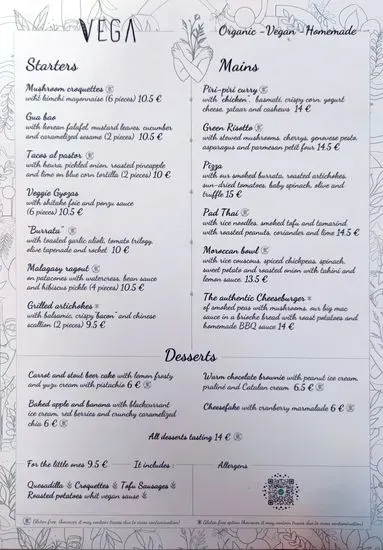 VEGA
Organic - Vegan - Homemade
Starters
Mushroom croquettes
whit kimchi mayonnaise (6 pieces) 10.5 €
Gua bao
with korean falafel, mustard leaves, cucumber
and caramelized sesame (2 pieces) 10.5 €
Tacos al pastor
with heura, pickled onion, roasted pineapple
and lime on blue corn tortilla (2 pieces) 10 €
Veggie Gyozas
with shitake foie and ponzu sauce
(6 pieces) 10.5 €
"Burrata"
with toasted garlic alioli, tomato trilogy,
olive tapenade and rocket 10 €
Malagasy ragout
on patacones with watercress, bean sauce
and hibiscus pickle (4 pieces) 10.5 €
Grilled artichokes
with balsamic, crispy "bacon" and chinese
scallion (2 pieces) 9.5 €
Mains
Piri-piri curry
with "chicken", basmati, crispy corn, yogurt
cheese, zataar and cashews 14 €
Green Risotto
with stewed mushrooms, cherrys, genovese pesto,
asparagus and parmesan petit four 14.5 €
Pizza
with our smoked burrata, roasted artichokes,
sun-dried tomatoes, baby spinach, olive and
truffle 15 €
Pad Thai
with rice noodles, smoked tofu and tamarind
with roasted peanuts, coriander and lime 14.5 €
Moroccan bowl
with rice couscous, spiced chickpeas, spinach,
sweet potato and roasted onion with tahini and
lemon sauce 13.5 €
The authentic Cheeseburger
of smoked peas with mushrooms, our big mac
sauce in a brioche bread with roast potatoes and
homemade BBQ sauce 14 €
Desserts
Carrot and stout beer cake with lemon frosty
and yuzu cream with pistachio 6 €
Baked apple and banana with blackcurrant
ice cream, red berries and crunchy caramelized
chia 6 €
Warm chocolate brownie with peanut ice cream
praliné and Catalan cream 6.5 €
Cheesefake with cranberry marmalade 6 €
All desserts tasting 14 €
For the little ones 9.5 € It includes :
Quesadilla Croquettes Tofu Sausages
Roasted potatoes whit vegan sause
Allergens
Gluten free (however it may contain traces due to cross contamination)
Gluten free option (however it may contain traces due to cross contamination)